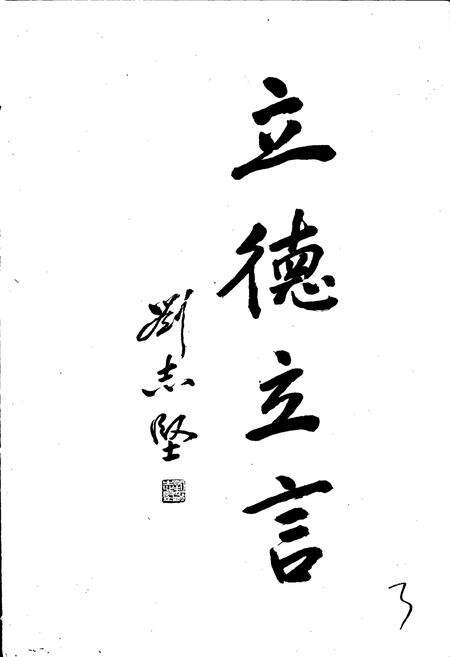 立德立言
劉志堅